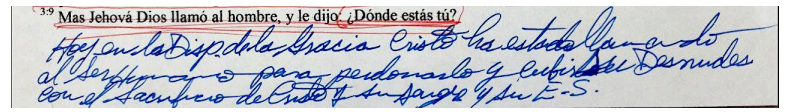 3:9 Mas Jehová Dios llamó al hombre, y le dijo: ¿Dónde estás tú?
Hoy en la Disp. de la Gracia Cristo ha estado llamando
al ser Humano para perdonarlo y cubrir su Desnudes
con el Sacrificio de Cristo y su Sangre y su E-S.